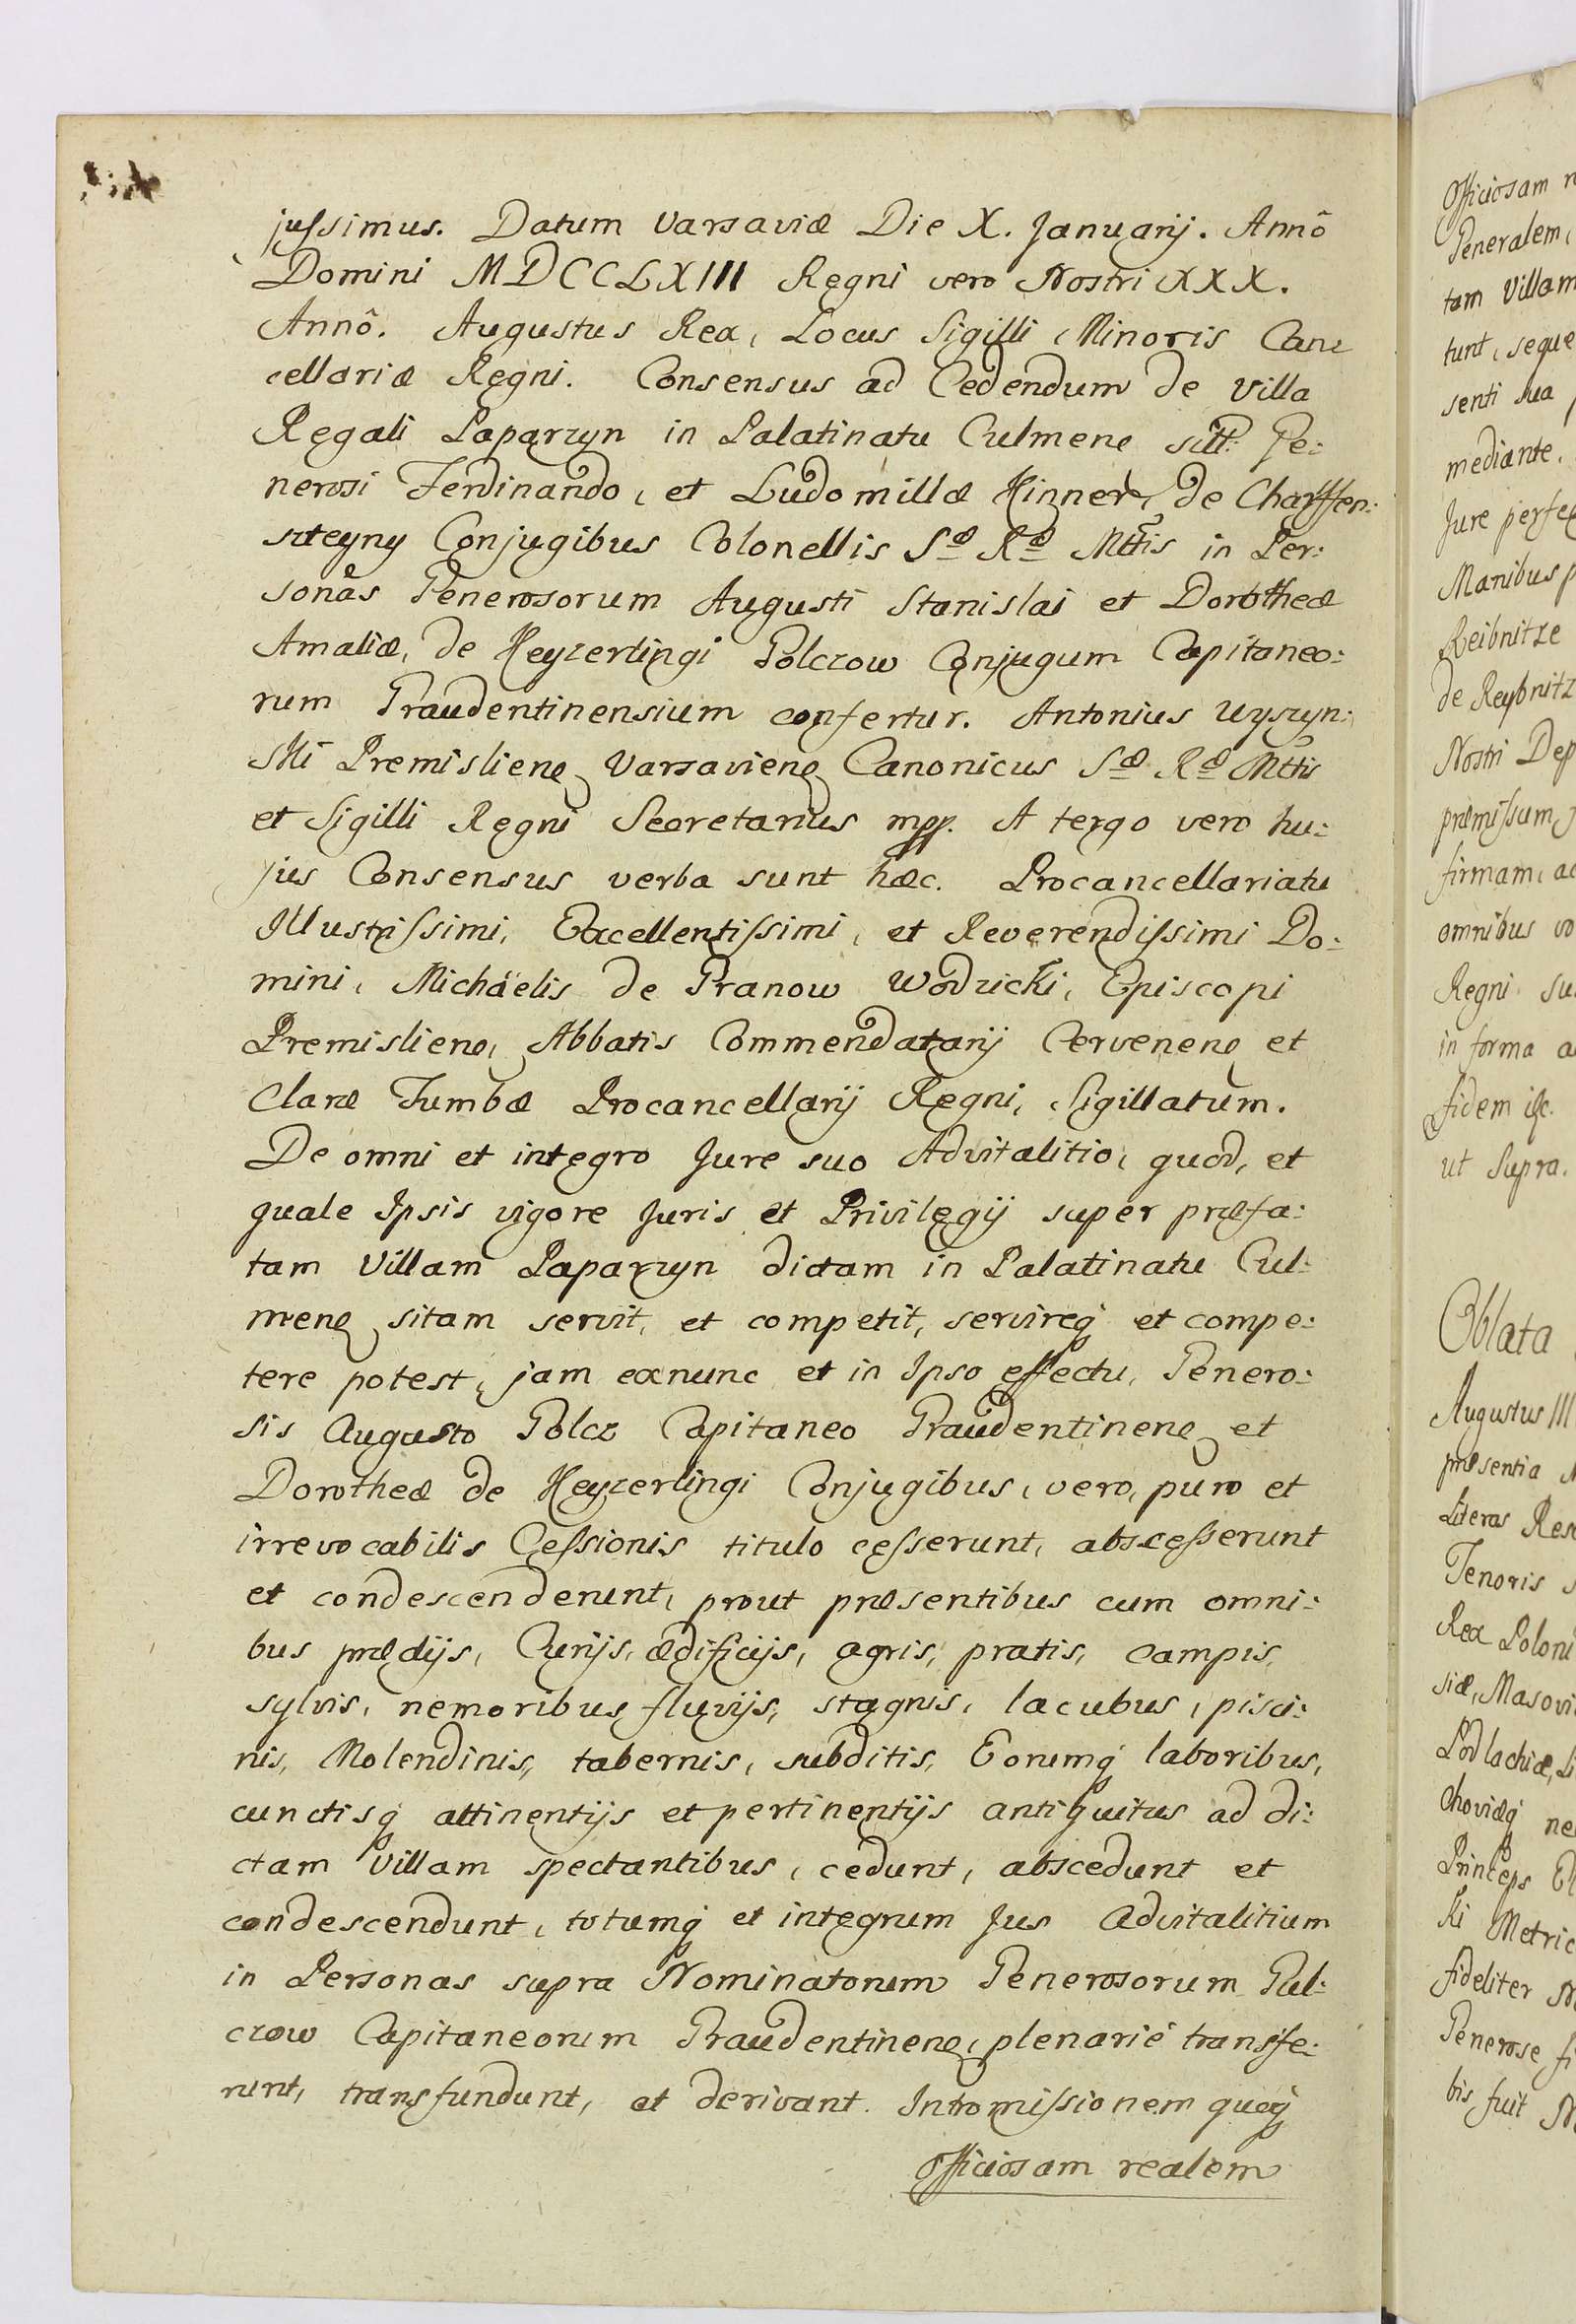 jussimus. Datum Varsaviæ Die X. Januarij. Annô
Domini MDCCLXIII Regni vero Nostri XXX.
Annô. Augustus Rex, Locus Sigilli Minoris Can:
cellariæ Regni. Consensus ad Cedendum de Villa
Regali Paparzyn in Palatinatu Culmenę sitt: Ge:
nerosi Ferdinando, et Ludomillæ Hinnerę, de Charffen:
szteyny Conjugibus Colonellis Sæ Ræ Mttis in Per:
sonas Generosorum Augusti Stanislai et Dorotheæ
Amaliæ, de Keyzerlingi Golczow Conjugum Capitaneo:
rum Graudentinensium confertur. Antonius Wyszyn:
ski Premislienę Varsavienę Canonicus Sæ Ræ Mttis
et Sigilli Regni Secretarius mpp. A tergo vero hu:
jus Consensus verba sunt hæc. Procancellariatu
Illustrissimi, Excellentissimi, et Reverendissimi Do:
mini, Michäelis de Granow Wodzicki, Episcopi
Premislienę, Abbatis Commendatarij Cervenenę et
Claræ Tumbæ Procancellarij Regni, Sigillatum.
De omni et integro Jure suo Advitalitio, quod, et
quale Ipsis vigore Juris et Privilegij super præfa:
tam Villam Paparzyn dictam in Palatinatu Cul:
menę sitam servit, et competit, servireq́ et compe:
tere potest, jam exnunc et in Ipso effectu, Genero:
sis Augusto Golcz Capitaneo Graudentinenę et
Dorotheæ de Keyzerlingi Conjugibus, vero, puro et
irrevocabilis Cessionis titulo cesserunt, abscesserunt
et condescenderunt, prout præsentibus cum omni:
bus prædijs, Curijs, ædificijs, agris, pratis, campis,
sylvis, nemoribus, fluvijs, stagnis, lacubus, pisci:
nis, Molendinis, tabernis, subditis, Eorumq́ laboribus,
cunctisq́ attinentijs et pertinentijs antiquitus ad di:
ctam Villam spectantibus, cedunt, abscedunt et
condescendunt, totumq́ et integrum Jus Advitalitium
in Personas supra Nominatorum Generosorum Gol:
czow Capitaneorum Graudentinenę, plenariè transfe:
runt, transfundunt, et derivant. Intromissionem quoq́
officiosam realem
Officiosam
Generalem,
tam Villam
tunt, seque
senti sua
mediante.
Jure
Manibus
Reibnitze
de Reybnitz
Nostri Dep
præmissum,
firmam, ac
omnibus vo
Regni su
in forma a
fidem
ut Supra.
Oblata
Augustus III
præsentia
Literas Res
Tenoris
Rex Poloni
siæ, Masovi
Podlachiæ, Li
choviæq́ ne
Princeps El
ki Metric
fideliter
Generose fi
bis fuit